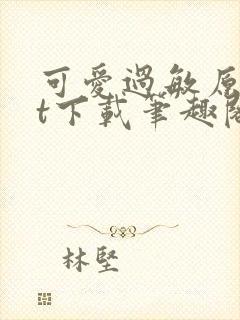 可愛過敏原
t下載筆趣閣
林堅